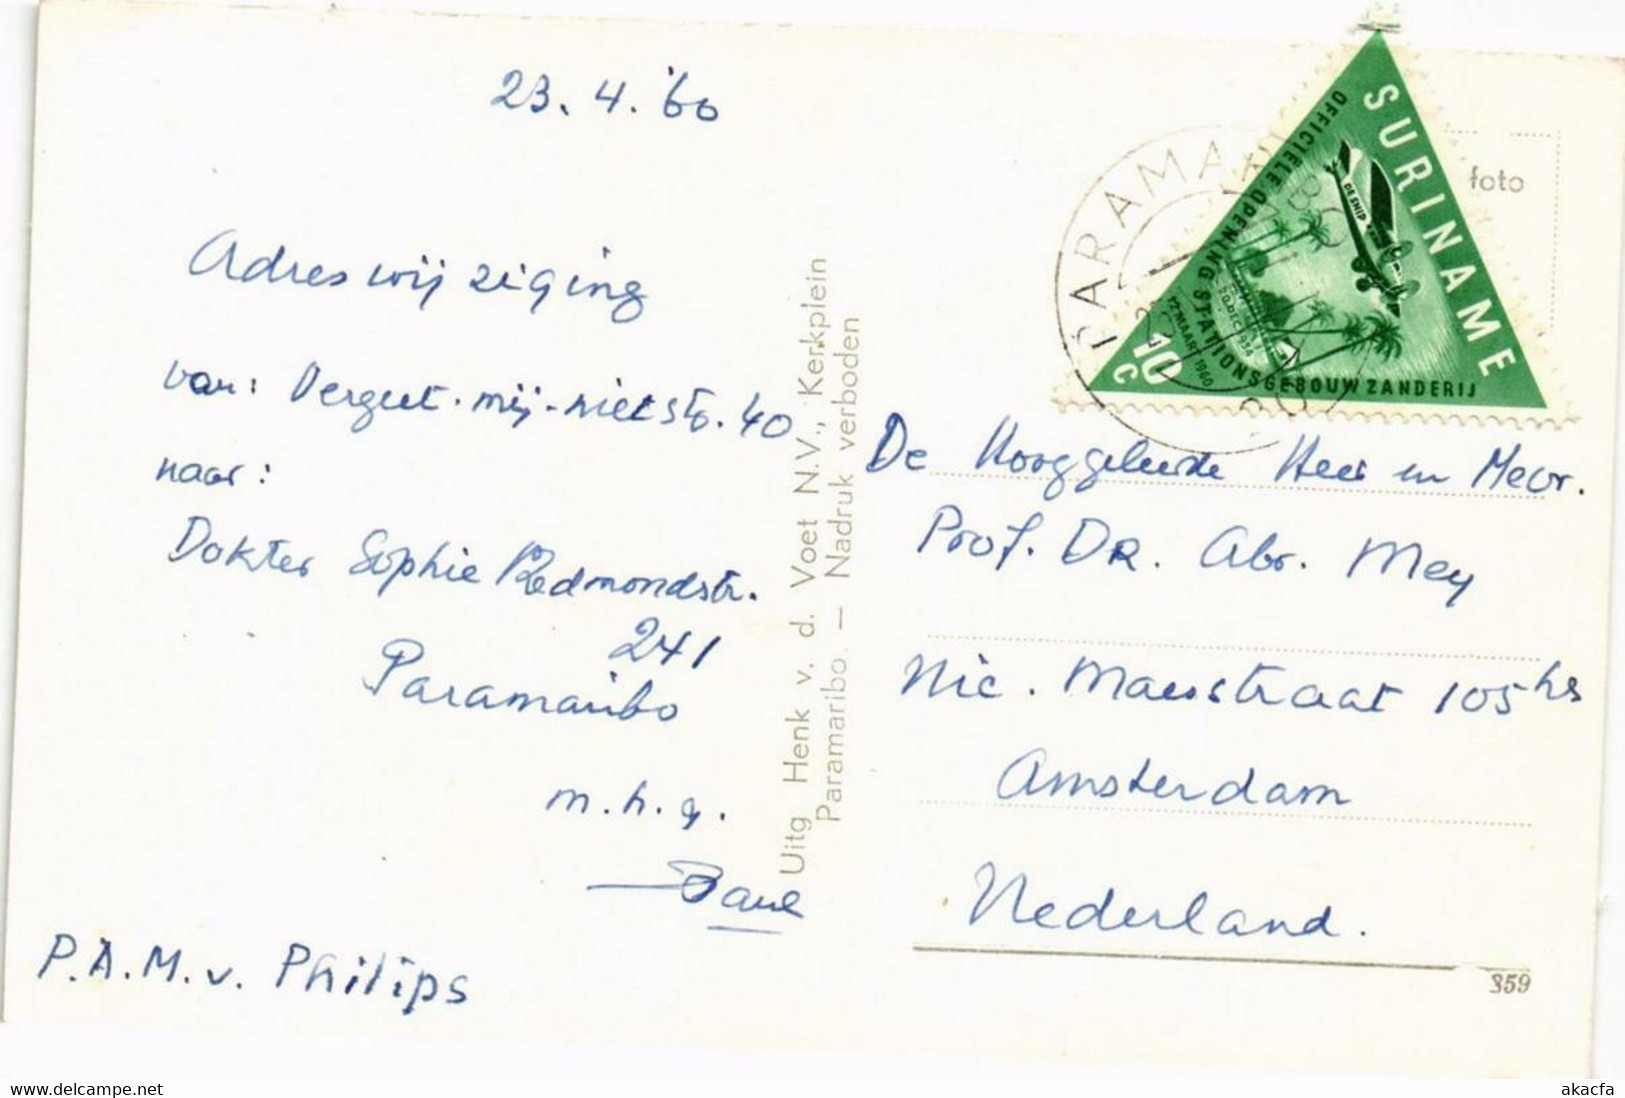 23.4.'60
Adreswijziging
van: Vergeet-mij-nietstr. 40
naar:
Dokter Sophie Redmondstr.
241
Paramaribo
m.h.g.
Paul
P.A.M. v. Philips
Uitg Henk v. d. Voet N.V., Kerkplein
Paramaribo. — Nadruk verboden
PARAMARIBO
SURINAME
OFFICIËLE OPENING STATIONSGEBOUW ZANDERIJ
DE SNIP
20 DEC 1934
12 MAART 1960
10 C
foto
De Hooggeleerde Heer en Mevr.
Prof. DR. Abr. Mey
Nic. Maesstraat 105 hs
Amsterdam
Nederland.
359
www.delcampe.net
akacfa